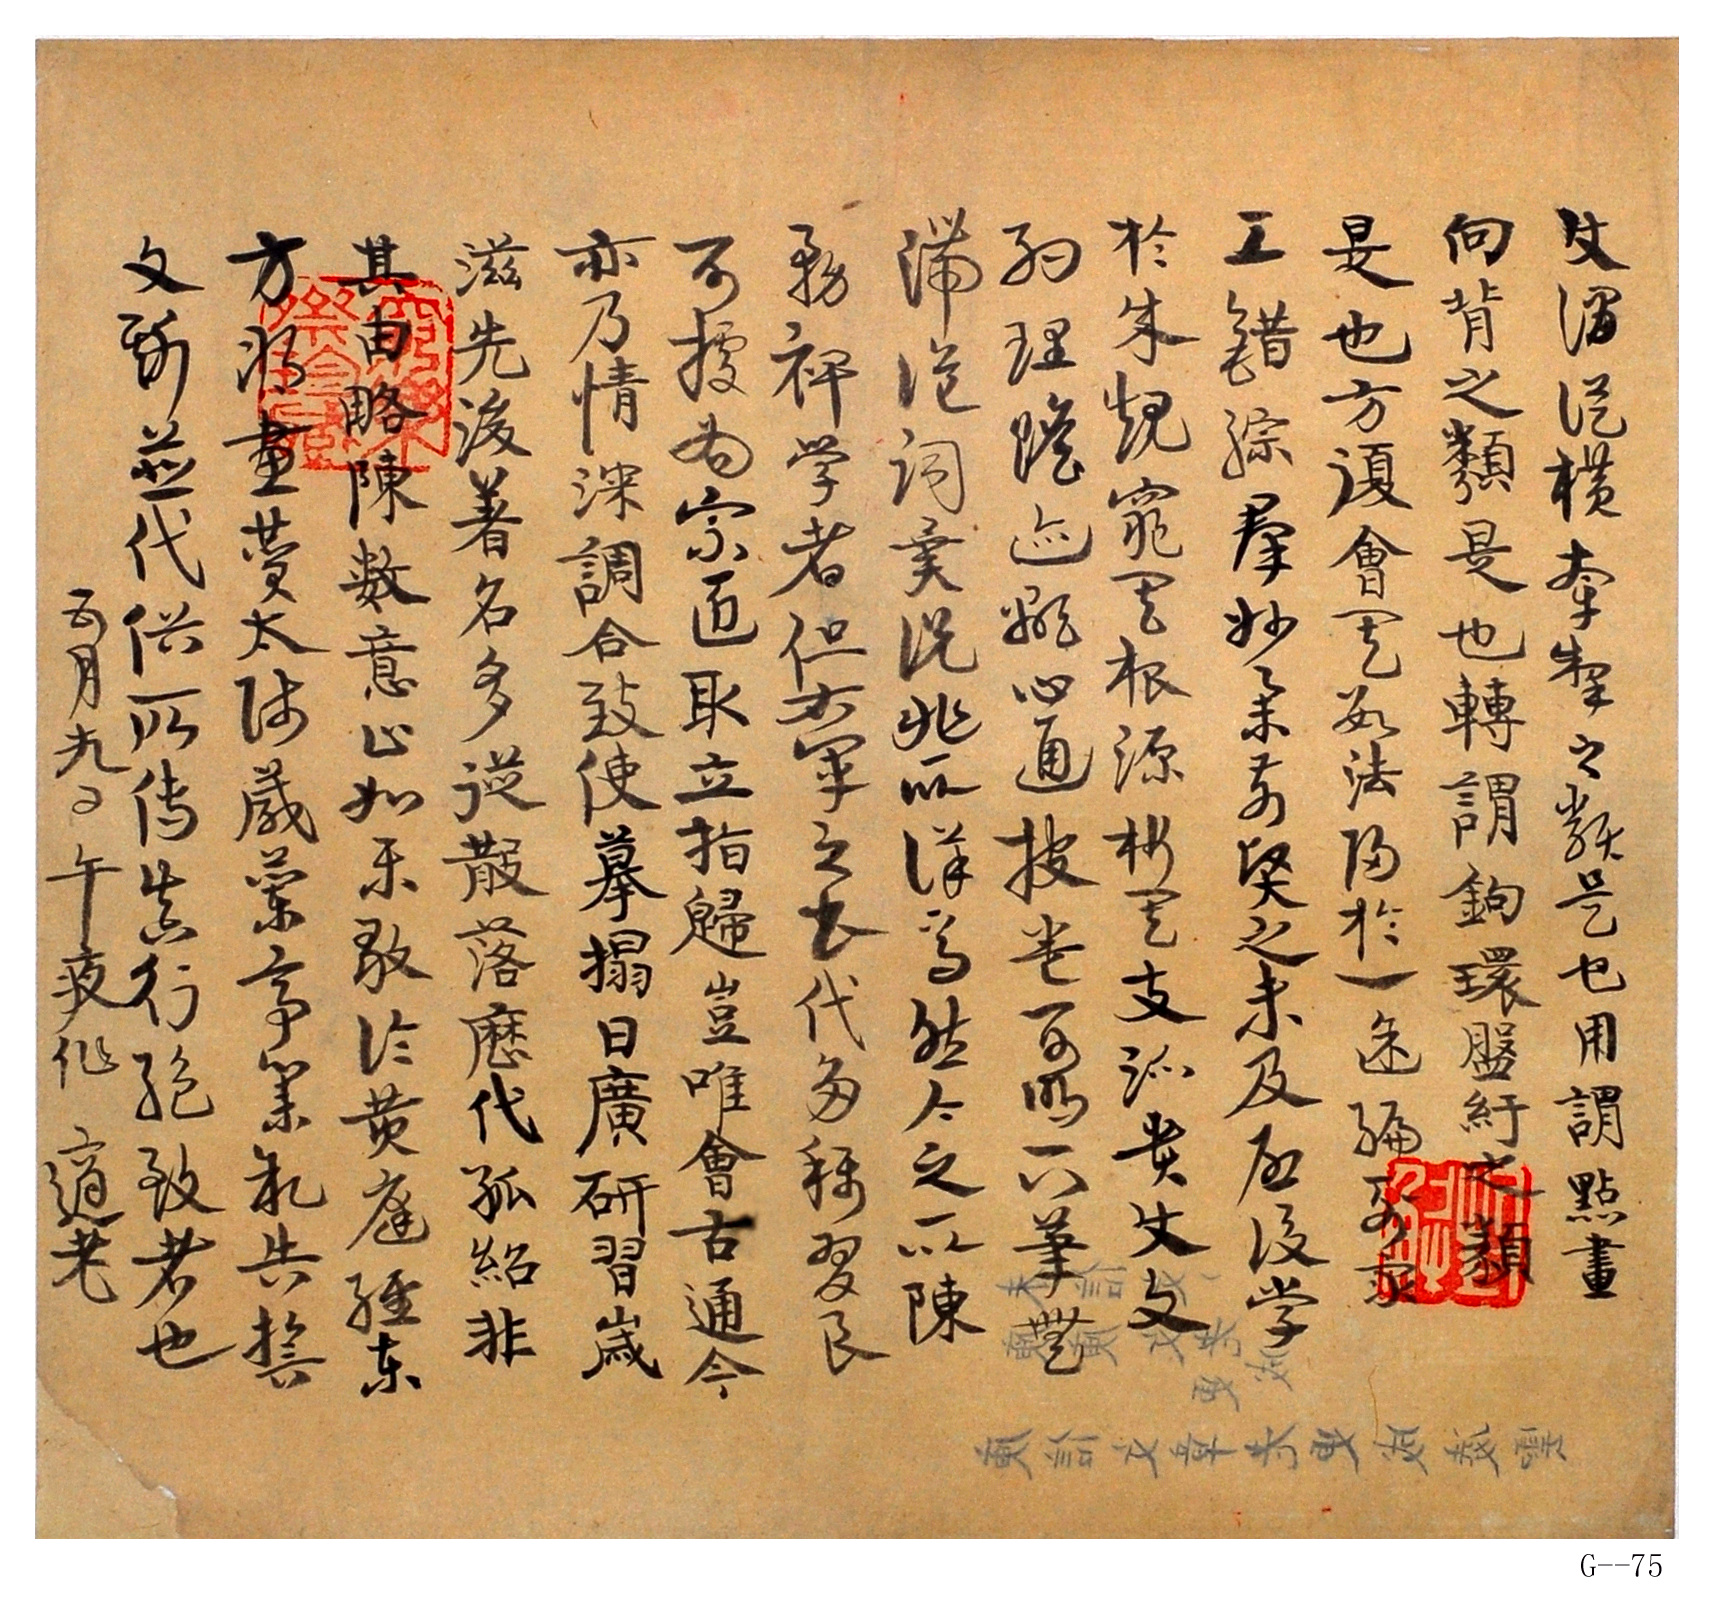 使謂縱橫牽掣之類是也用謂點畫
向背之類是也轉謂鉤環盤紆之類
是也方復會其數法歸於一途編列眾
工錯綜群妙舉前賢之未及啟後学
於成規窺其根源析其支派貴使文
約理贍迹顯心通披卷可明下筆無
滯詭詞異說非所詳焉然今之所陳
務裨学者但右軍之書代多稱習良
可據為宗匠取立指歸豈唯會古通今
亦乃情深調合致使摹搨日廣研習歲
滋先後著名多從散落歷代孤紹非
其由略陳數意止如樂毅論黃庭經東
方朔畫贊太師箴蘭亭集序告誓
文斯並代俗所傳真行絕致者也
五月九日午夜作 老
G--75